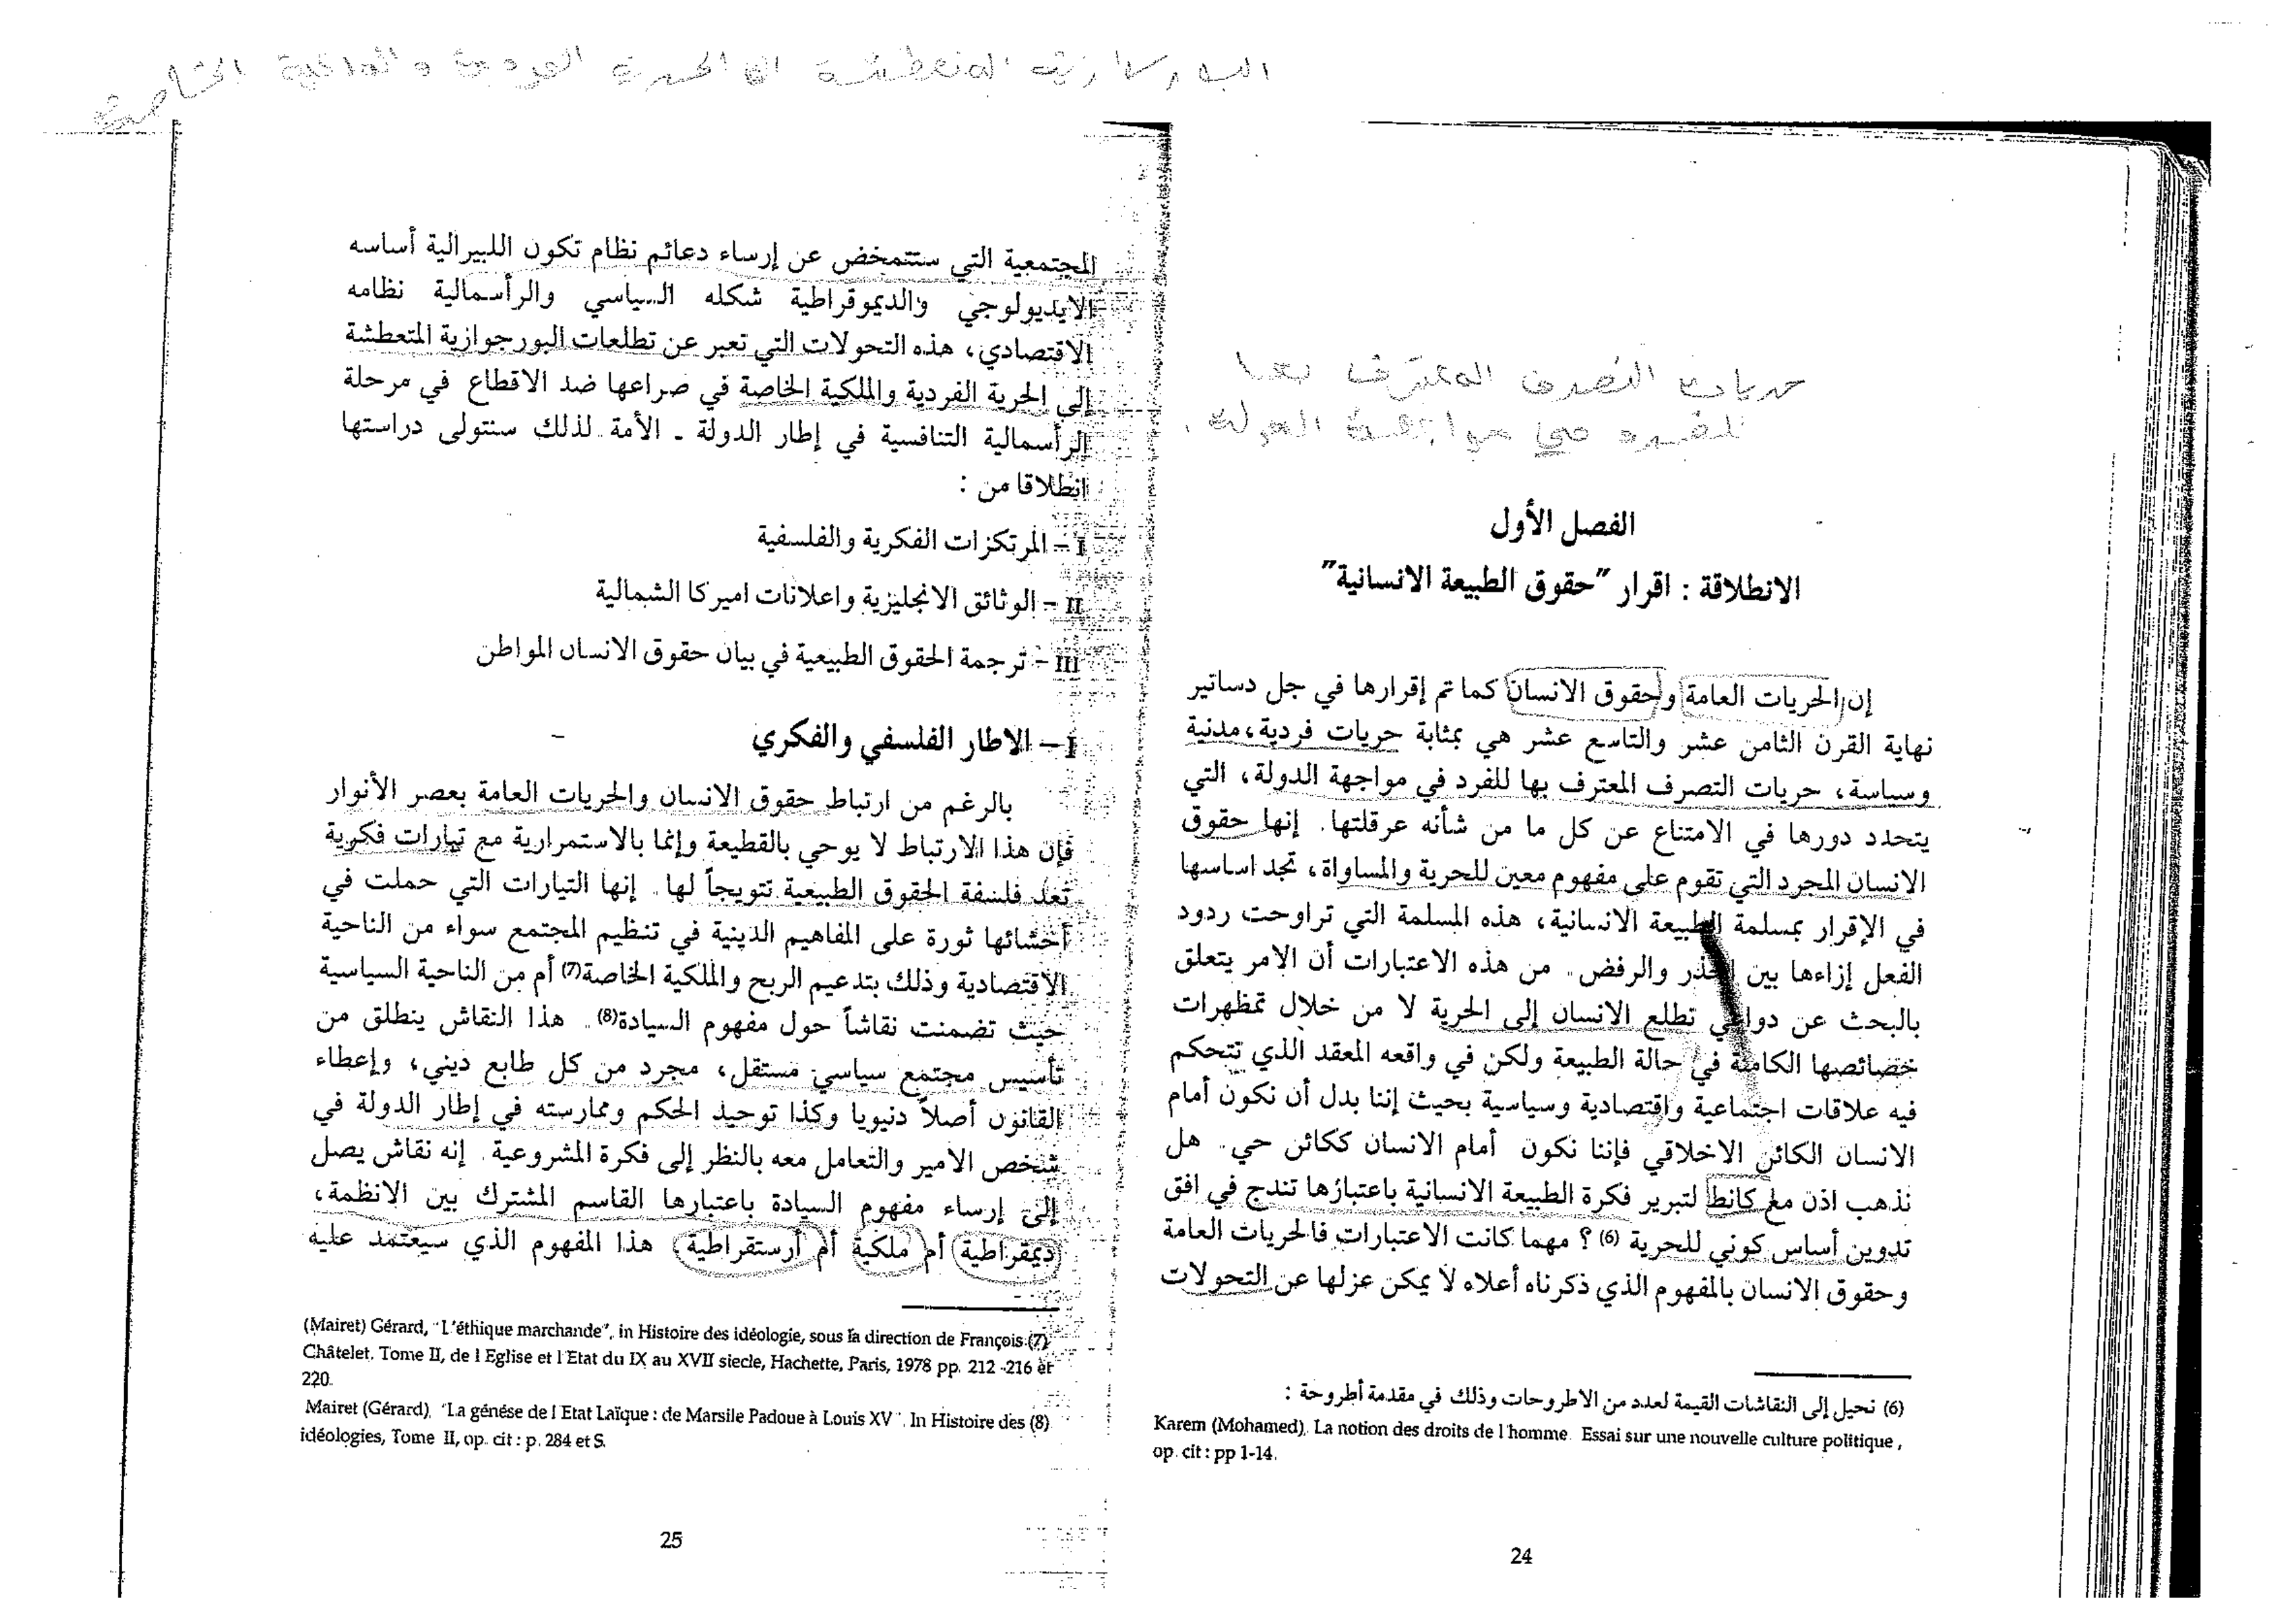 البورجوازية المتعطشة الى الحرية الفردية والملكية الخاصة
حريات التصرف المعترف بها
للفرد في مواجهة الدولة.
الفصل الأول
الانطلاقة : اقرار "حقوق الطبيعة الانسانية"
إن الحريات العامة وحقوق الانسان كما تم إقرارها في جل دساتير
نهاية القرن الثامن عشر والتاسع عشر هي بمثابة حريات فردية، مدنية
وسياسة، حريات التصرف المعترف بها للفرد في مواجهة الدولة، التي
يتحدد دورها في الامتناع عن كل ما من شأنه عرقلتها. إنها حقوق
الانسان المجرد التي تقوم على مفهوم معين للحرية والمساواة، تجد اساسها
في الإقرار بمسلمة الطبيعة الانسانية، هذه المسلمة التي تراوحت ردود
الفعل إزاءها بين الحذر والرفض. من هذه الاعتبارات أن الامر يتعلق
بالبحث عن دواعي تطلع الانسان إلى الحرية لا من خلال تمظهرات
خصائصها الكاملة في حالة الطبيعة ولكن في واقعه المعقد الذي تتحكم
فيه علاقات اجتماعية واقتصادية وسياسية بحيث إننا بدل أن نكون أمام
الانسان الكائن الاخلاقي فإننا نكون أمام الانسان ككائن حي. هل
نذهب اذن مع كانط لتبرير فكرة الطبيعة الانسانية باعتبارها تندج في افق
تدوين أساس كوني للحرية (6) ؟ مهما كانت الاعتبارات فالحريات العامة
وحقوق الانسان بالمفهوم الذي ذكرناه أعلاه لا يمكن عزلها عن التحولات
(6) نحيل إلى النقاشات القيمة لعدد من الاطروحات وذلك في مقدمة أطروحة :
Karem (Mohamed). La notion des droits de l'homme. Essai sur une nouvelle culture politique,
op. cit : pp 1-14.
24
المجتمعية التي ستتمخض عن إرساء دعائم نظام تكون الليبرالية أساسه
الايديولوجي والديموقراطية شكله السياسي والرأسمالية نظامه
الاقتصادي، هذه التحولات التي تعبر عن تطلعات البورجوازية المتعطشة
إلى الحرية الفردية والملكية الخاصة في صراعها ضد الاقطاع في مرحلة
الرأسمالية التنافسية في إطار الدولة ـ الأمة لذلك سنتولى دراستها
انطلاقا من :
I – المرتكزات الفكرية والفلسفية
II – الوثائق الانجليزية واعلانات اميركا الشمالية
III – ترجمة الحقوق الطبيعية في بيان حقوق الانسان المواطن
I – الاطار الفلسفي والفكري
بالرغم من ارتباط حقوق الانسان والحريات العامة بعصر الأنوار
فإن هذا الارتباط لا يوحي بالقطيعة وإنما بالاستمرارية مع تيارات فكرية
تعد فلسفة الحقوق الطبيعية تتويجاً لها. إنها التيارات التي حملت في
أحشائها ثورة على المفاهيم الدينية في تنظيم المجتمع سواء من الناحية
الاقتصادية وذلك بتدعيم الربح والملكية الخاصة(7) أم من الناحية السياسية
حيث تضمنت نقاشاً حول مفهوم السيادة(8). هذا النقاش ينطلق من
تأسيس مجتمع سياسي مستقل، مجرد من كل طابع ديني، وإعطاء
القانون أصلاً دنيويا وكذا توحيد الحكم وممارسته في إطار الدولة في
شخص الامير والتعامل معه بالنظر إلى فكرة المشروعية. إنه نقاش يصل
إلى إرساء مفهوم السيادة باعتبارها القاسم المشترك بين الانظمة،
ديمقراطية أم ملكية أم أرستقراطية هذا المفهوم الذي سيعتمد عليه
(Mairet) Gérard, "L'éthique marchande", in Histoire des idéologie, sous la direction de François (7)
Châtelet. Tome II, de l Eglise et l'Etat du IX au XVII siecle, Hachette, Paris, 1978 pp. 212 -216 et
220.
Mairet (Gérard). "La génése de l Etat Laïque : de Marsile Padoue à Louis XV". In Histoire des (8)
idéologies, Tome II, op. cit : p. 284 et S.
25